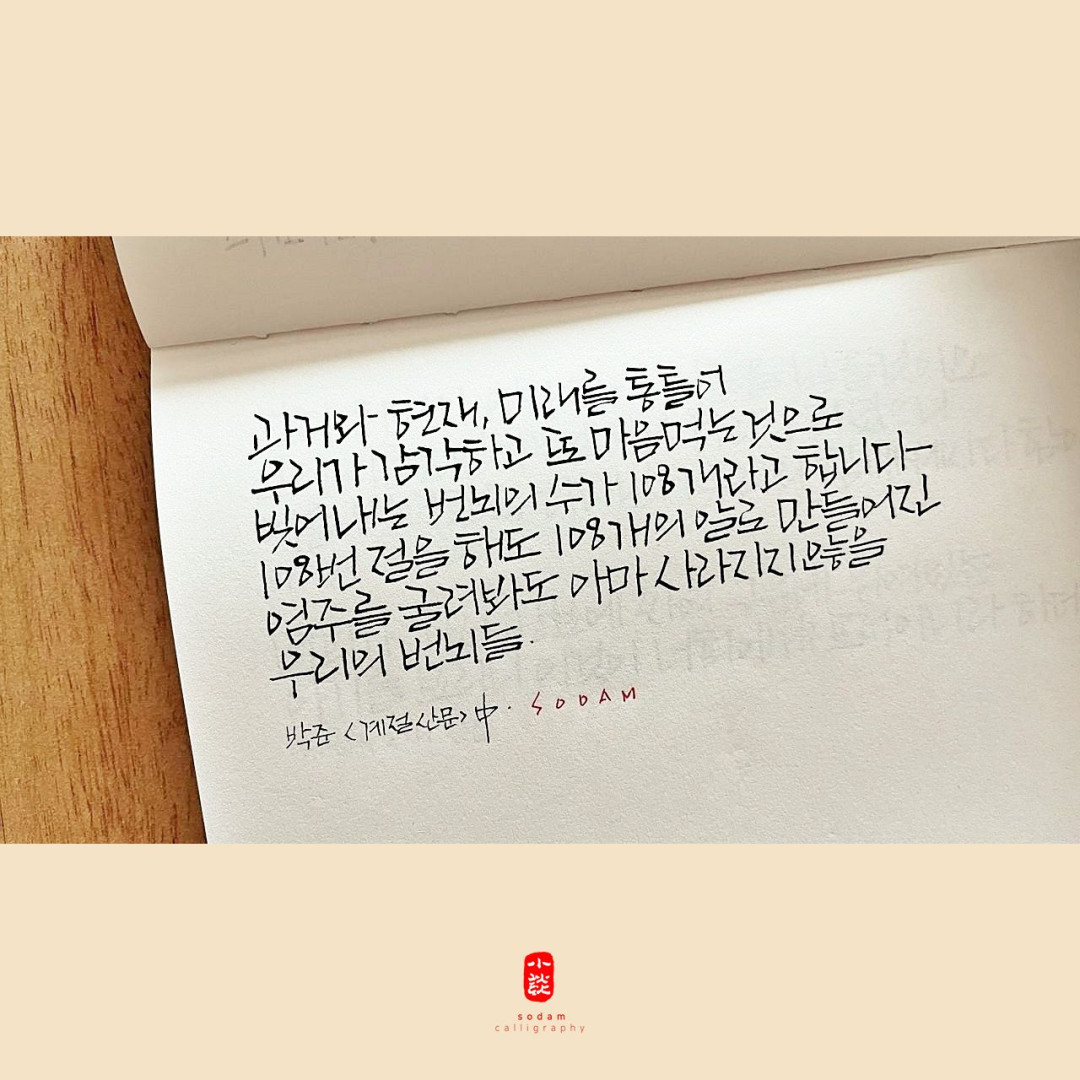 과거와 현재, 미래를 통틀어
우리가 감각하고 또 마음먹는 것으로
빚어내는 번뇌의 수가 108개라고 합니다
108번 절을 해도 108개의 알로 만들어진
염주를 굴려봐도 아마 사라지지 않을
우리의 번뇌들.
박준 <계절산문> 中. SODAM
小談
sodam
calligraphy